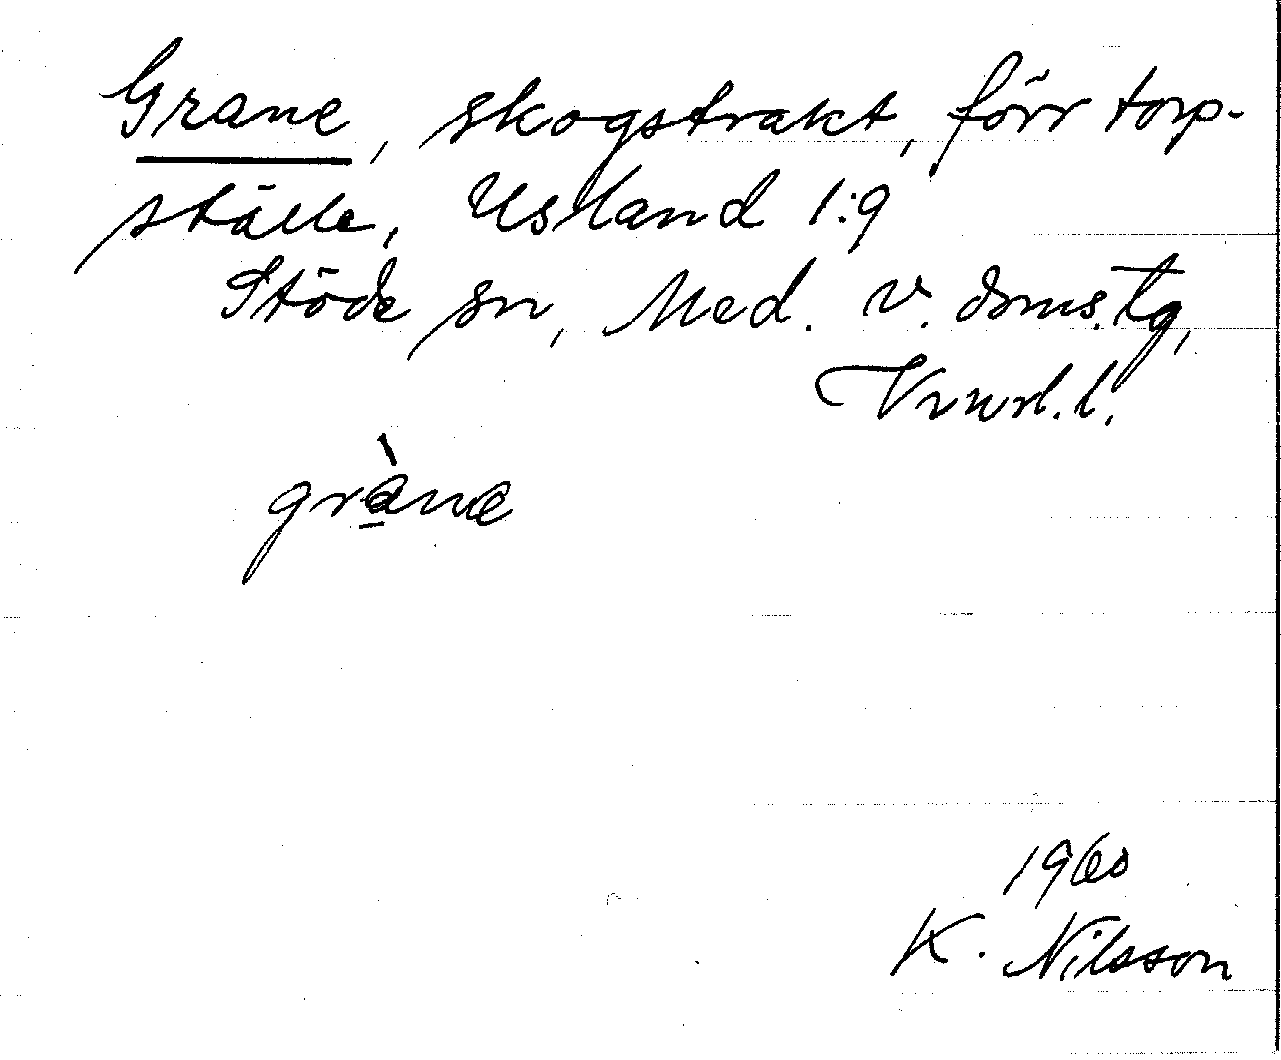 Grane, skogstrakt, förr torp-
ställe, Usland 1:9
Stöde sn, Med. v. doms.tg,
Vnorl. l.
gràne
1960
K. Nilsson